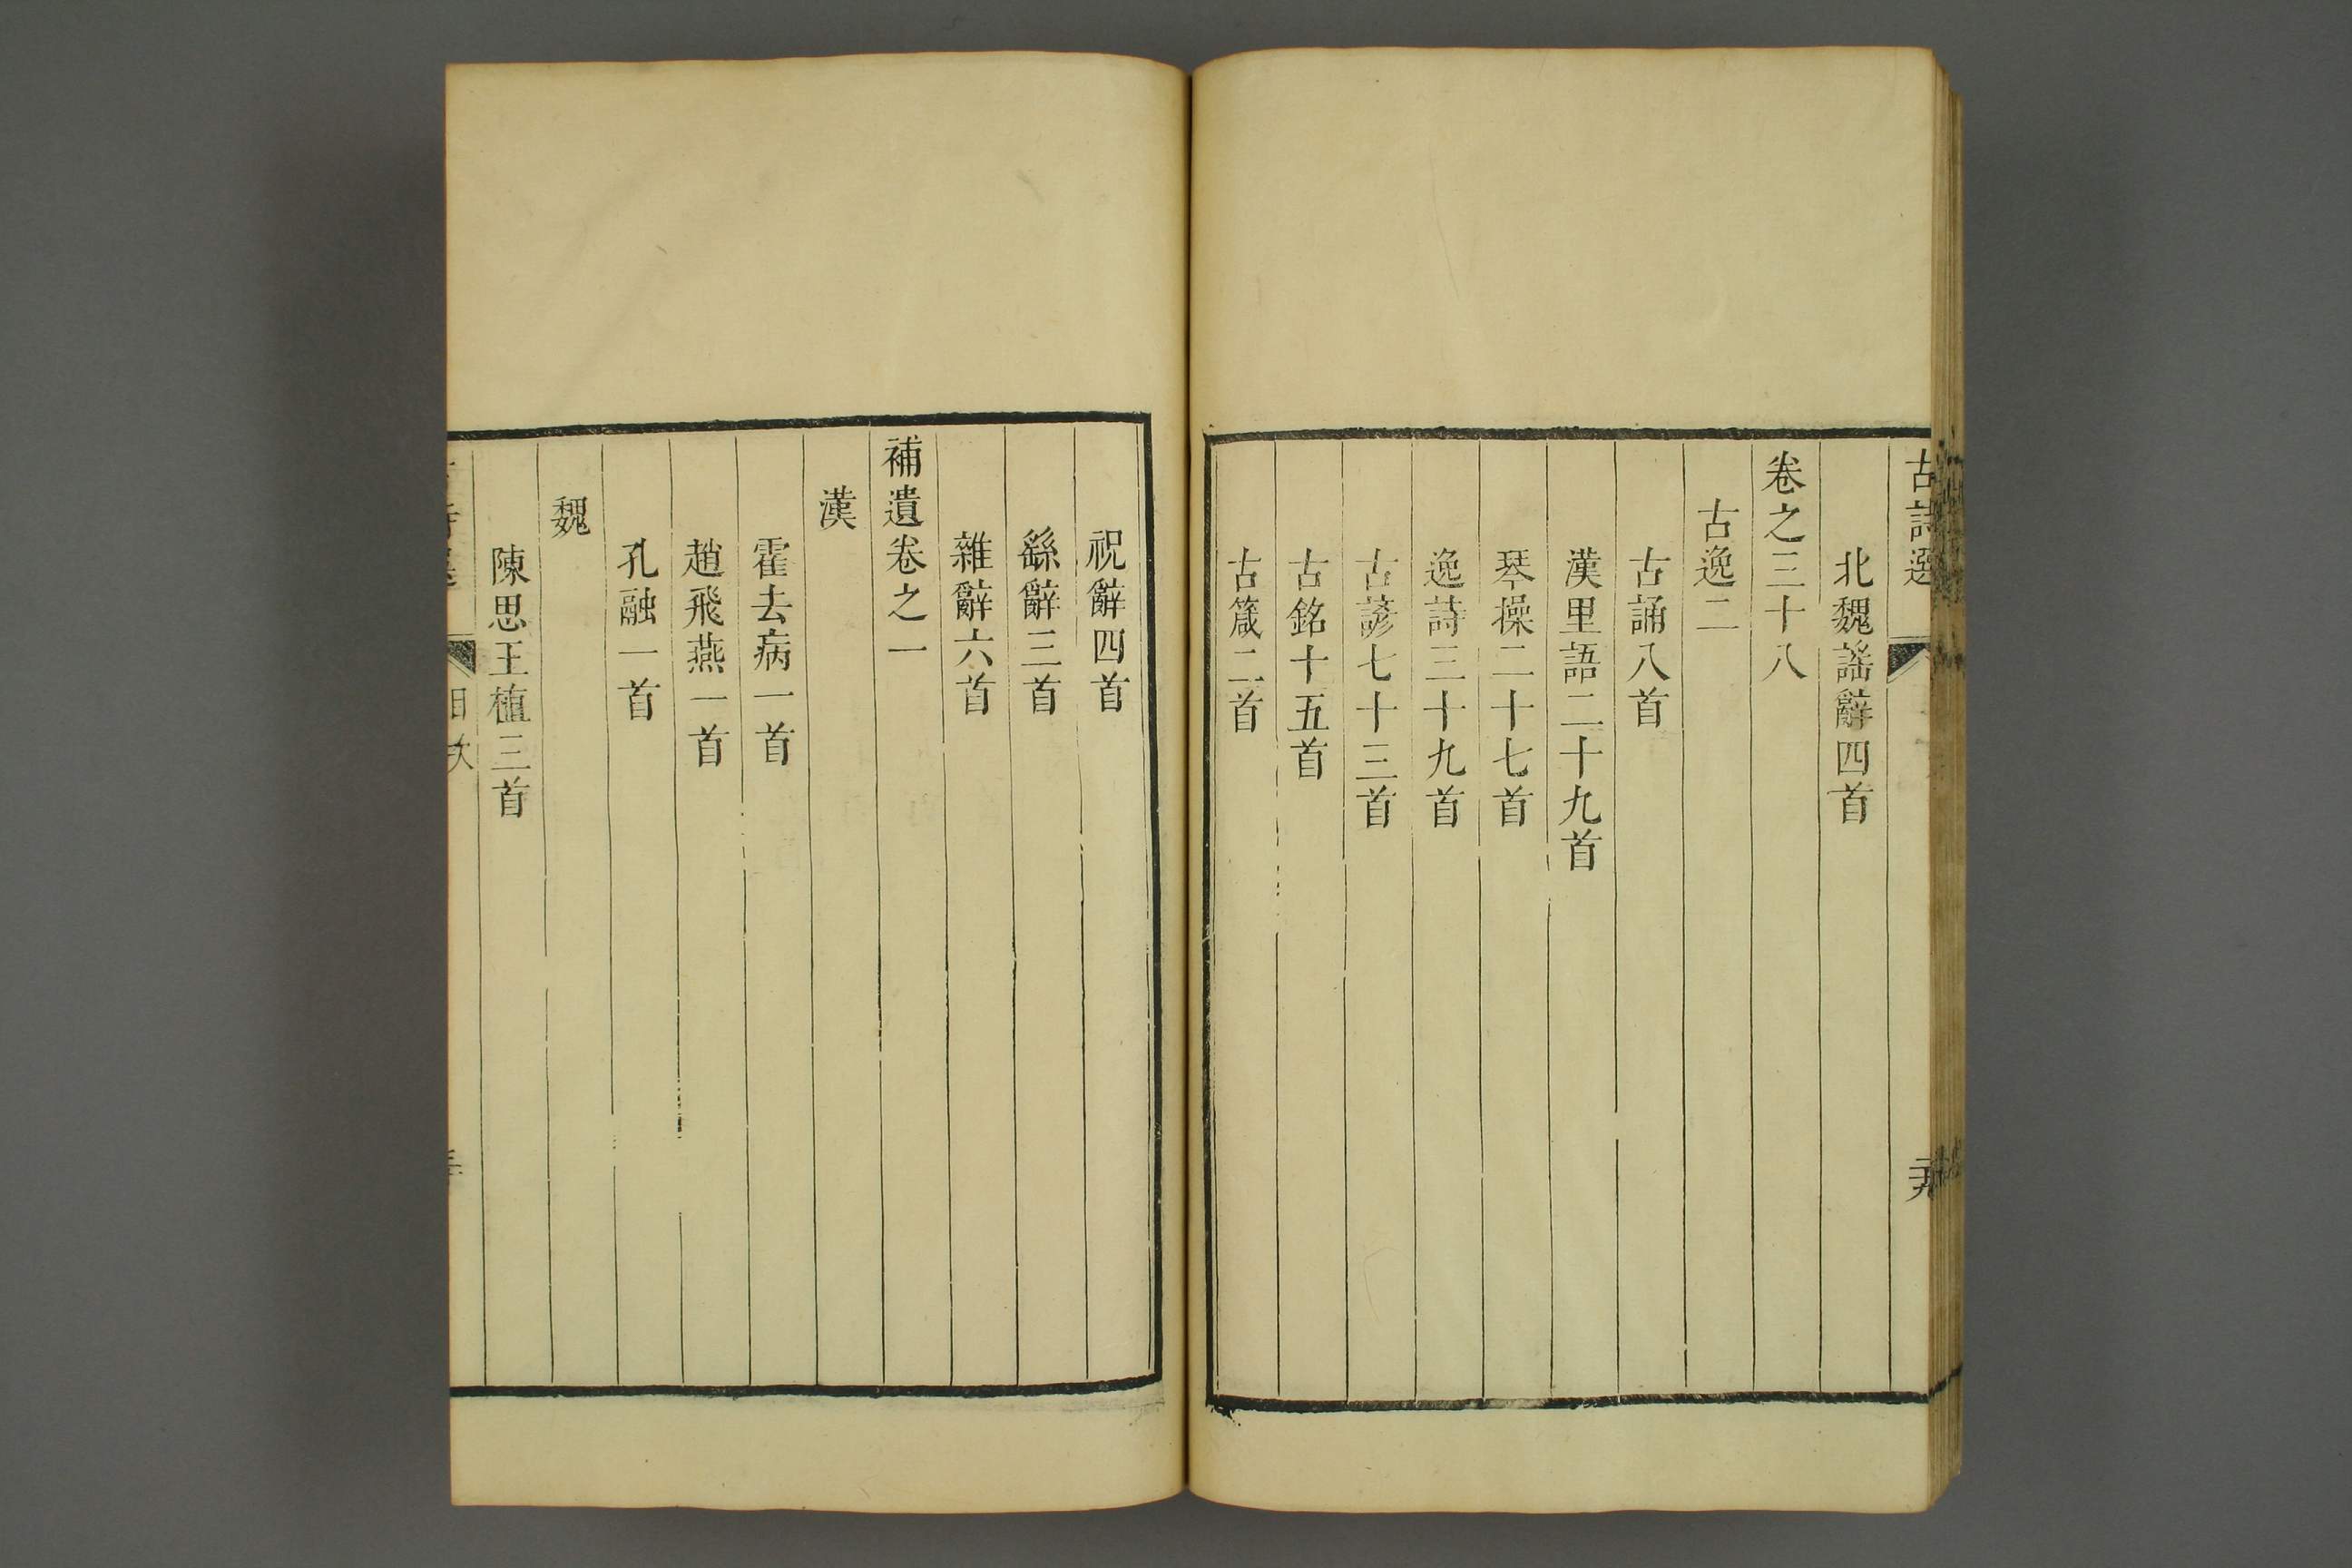 古詩選
北魏謠辭四首
卷之三十八
古逸二
古誦八首
漢里語二十九首
琴操二十七首
逸詩三十九首
古諺七十三首
古銘十五首
古箴二首
祝辭四首
繇辭三首
雜辭六首
補遺卷之一
漢
霍去病一首
趙飛燕一首
孔融一首
魏
陳思王植三首
目次